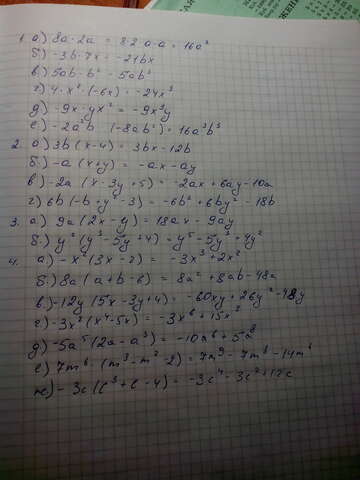 1. а) 8a · 2a = 8·2 a·a = 16a²
б) -3b · 7x = -21bx
в) 5ab · b² = 5ab³
г) 4 · x² · (-6x) = -24x³
д) -9x · yx² = -9x³y
е) -2a²b · (-8ab²) = 16a³b³
2. а) 3b(x-4) = 3bx - 12b
б) -a(x+y) = -ax - ay
в) -2a (x-3y+5) = -2ax + 6ay - 10a
г) 6b (-b+y²-3) = -6b² + 6by² - 18b
3. а) 9a (2x-y) = 18ax - 9ay
б) y² (y³-5y+4) = y⁵ - 5y³ + 4y²
4. а) -x² (3x-2) = -3x³ + 2x²
б) 8a (a+b-6) = 8a² + 8ab - 48a
в) -12y (5x-3y+4) = -60xy + 26y² - 48y
г) -3x² (x⁴-5x) = -3x⁶ + 15x³
д) -5a⁵ (2a-a³) = -10a⁶ + 5a⁸
е) 7m⁶ · (m³-m²-2) = 7m⁹ - 7m⁸ - 14m⁶
ж) -3c (c³+c-4) = -3c⁴ - 3c² + 12c